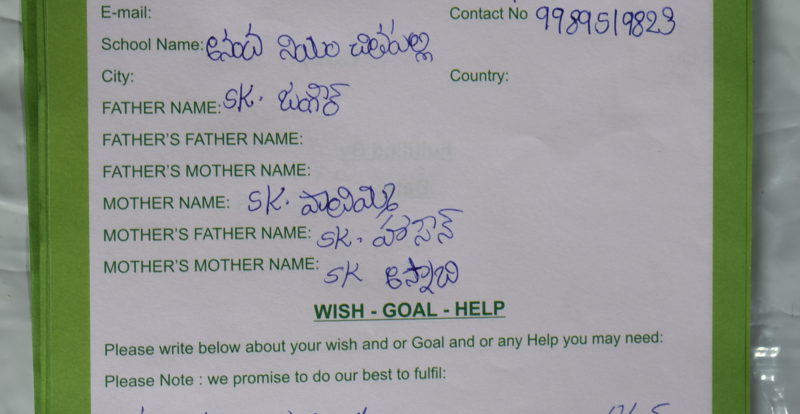 E-mail:
Contact No 9989519823
School Name:
City:
Country:
FATHER NAME: SK. జహంగీర్
FATHER'S FATHER NAME:
FATHER'S MOTHER NAME:
MOTHER NAME: SK.
MOTHER'S FATHER NAME: SK. హాసన్
MOTHER'S MOTHER NAME: SK
WISH - GOAL - HELP
Please write below about your wish and or Goal and or any Help you may need:
Please Note : we promise to do our best to fulfil: